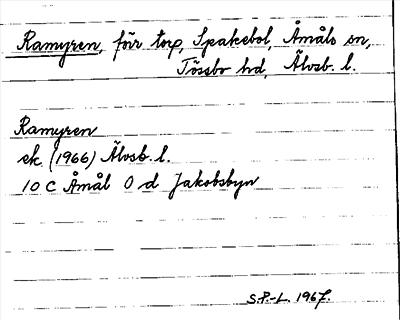 Ramyren, förr torp, Spakebol, Åmåls sn,
Tössbo hd, Älvsb. l.
Ramyren
ek (1966) Älvsb. l.
10 C Åmål O d Jakobsbyn
S.P.-L. 1967.